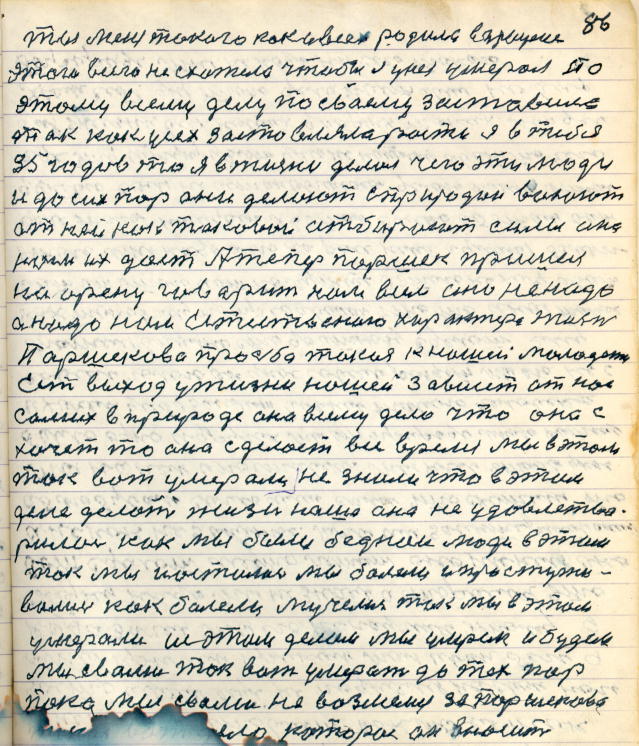 86
ты меня такого как и всех родила в природе
этого виго не схотела чтобы я у нея умерал По
этому всему делу по своему заставила
так как у ех заставляла расти я в тебя
35 годов то я в жизни делал чего эти люди
и до сих пор они делают с природой воюют
от ней как таковой атбирают силы она
ним их дает А тепер паршек пришел
на арену говарит нам всем это ненадо
а надо нам естественого характера жизн
Паршекова прозба такая к нашей моладежи
Ест выход у жизни нашей Зависит от нас
самих в природе она всему дело что она с
хочет то она сделает все время мы в этом
так вот умерали не знали что в этом
деле делать жизн наша она не удовлетва-
рилас как мы были беднои люди в этом
так мы и остались мы болели и простужи-
валис как болели мучелис так мы в этом
умерали и этом делом мы умрем и будем
мы свами так вот умерат до тех пор
пока мы свами не возмемся за паршекова
дело которое он вносит